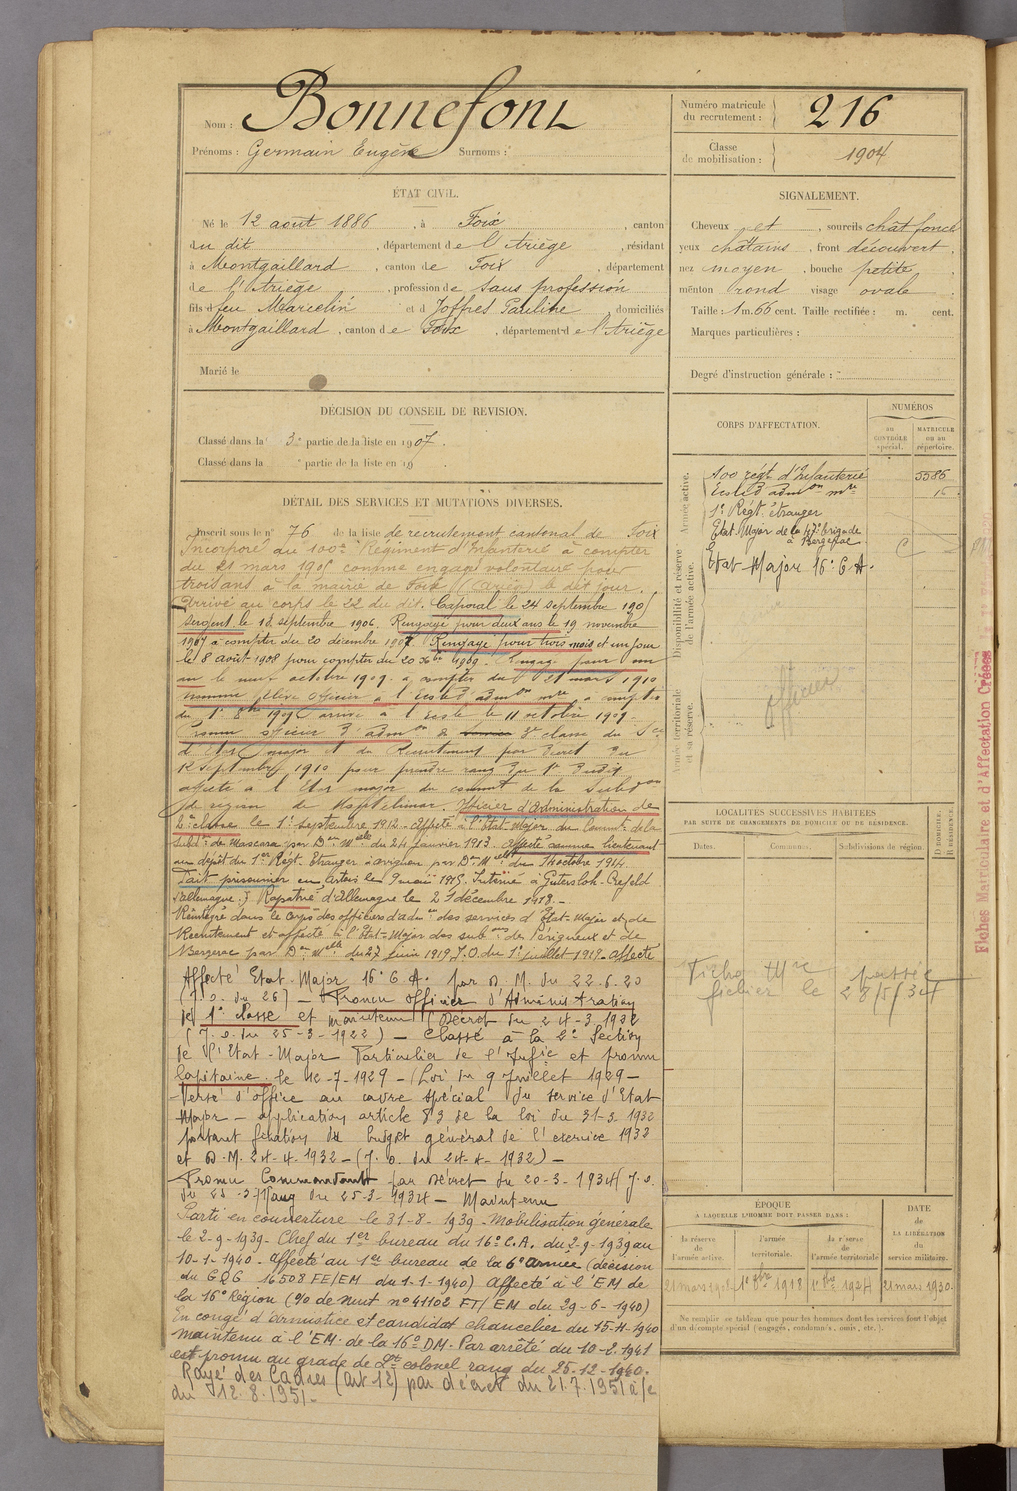 Nom : Bonnefont
Prénoms : Germain Eugène Surnoms :
Numéro matricule du recrutement : 216
Classe de mobilisation : 1904
ÉTAT CIVIL.
Né le 12 août 1886, à Foix, canton
du dit, département de l'Ariège, résidant
à Montgaillard, canton de Foix, département
de l'Ariège, profession de sans profession
fils d feu Marcelin et d Joffres Pauline, domiciliés
à Montgaillard, canton de Foix, département de l'Ariège
Marié le
SIGNALEMENT.
Cheveux et, sourcils chât foncé
yeux châtains, front découvert
nez moyen, bouche petite
menton rond visage ovale
Taille : 1 m. 66 cent. Taille rectifiée : m. cent.
Marques particulières :
Degré d'instruction générale :
DÉCISION DU CONSEIL DE REVISION.
Classé dans la 3e partie de la liste en 1907.
Classé dans la partie de la liste en 19
DÉTAIL DES SERVICES ET MUTATIONS DIVERSES.
Inscrit sous le n° 76 de la liste de recrutement cantonal de Foix
Incorporé au 100e Régiment d'Infanterie à compter
du 21 mars 1905 comme engagé volontaire pour
trois ans à la mairie de Foix (Ariège) le dit jour.
Arrivé au corps le 22 du dit. Caporal le 24 septembre 1905
Sergent le 18 septembre 1906. Rengagé pour deux ans le 19 novembre
1907 à compter du 20 décembre 1907. Rengagé pour trois mois et un jour
le 8 août 1908 pour compter du 20 Xbre 1909. Rengagé pour un
an le neuf octobre 1909. à compter du 21 mars 1910
nommé élève officier à l'École d'admon mre à compter
du 1er 8bre 1909 arrivé à l'École le 11 octobre 1909.
Promu officier d'admon de 3e classe du Sce
d'État major et du Recrutement par Décret du
12 Septembre 1910 pour prendre rang du 1er Dudit
affecté à l'État major du commt de la Subdon
de région de Montélimar. Officier d'Administration de
2e classe le 1er septembre 1912. Affecté à l'Etat-Major du Commt de la
Subdon de Mascara par Don Mlle du 24 janvier 1913. Affecté comme lieutenant
au dépôt du 1er Régt Etranger à Avignon par Don Mlle du 14 octobre 1914.
Fait prisonnier en Artois le 9 mai 1915. Interné à Gütersloh-Crefeld
(Allemagne). Rapatrié d'Allemagne le 21 décembre 1918.-
Réintégré dans le corps des officiers d'admon des services d'Etat-Major et de
Recrutement et affecté à l'Etat-Major des subons de Périgueux et de
Bergerac par Don Mlle du 27 juin 1919 J.O. du 1er juillet 1919. affecté
Affecté Etat-Major 16e C.A. par D.M. du 22.6.20
(J.O. du 26) - Promu officier d'Administration
de 1e classe et maintenu (Décret du 24-3-1922
(J.O. du 25-3-1922) - Classé à la 2e Section
de l'Etat-Major Particulier de l'Infie et promu
Capitaine le 12-7-1929 - (Loi du 9 Juillet 1929 -
Versé d'office au cadre spécial du service d'Etat
Major - application article 83 de la loi du 31-3-1932
portant fixation du budget général de l'exercice 1932
et D.M. 24-4-1932 - (J.O. du 24-4-1932) -
Promu Commandant par décret du 20-3-1934 J.O.
du 23-3- Rang du 25-3-1934 - Maintenu
Parti en couverture le 31-8-1939 - Mobilisation générale
le 2-9-1939 - Chef du 1er bureau du 16e C.A. du 2-9-1939 au
10-1-1940 - Affecté au 1er bureau de la 6e armée (décision
du GQG 16508 FE/EM du 1-1-1940) Affecté à l'EM de
la 16e Région (N° 41102 FT/EM du 29-6-1940)
En congé d'armistice et candidat chancelier du 15-11-1940
maintenu à l'EM de la 16e DM. Par arrêté du 10-2-1941
est promu au grade de Lt colonel rang du 25.12-1940.
Rayé des Cadres (Art 12) par décret du 21.7.1951 à/c
du 12.8.1951.-
CORPS D'AFFECTATION.
NUMÉROS
au CONTRÔLE spécial.
MATRICULE ou au répertoire.
Armée active.
100 régt d'Infanterie 5586
École d'admon mre 15
1er Régt étranger
Etat Major de la 47e brigade
à Bergerac
Disponibilité et réserve de l'armée active.
Etat-Major 16e C.A.
Armée territoriale et sa réserve.
officier
LOCALITÉS SUCCESSIVES HABITÉES
PAR SUITE DE CHANGEMENTS DE DOMICILE OU DE RÉSIDENCE.
Dates. Communes. Subdivisions de région. D DOMICILE. R RÉSIDENCE.
Fiche Mle passée
fichier le 28/5/34
ÉPOQUE
À LAQUELLE L'HOMME DOIT PASSER DANS :
la réserve de l'armée active.
l'armée territoriale.
la réserve de l'armée territoriale
DATE de LA LIBÉRATION du service militaire.
21 mars 1908 1er 8bre 1918 1er 8bre 1924 21 mars 1930
Ne remplir ce tableau que pour les hommes dont les services font l'objet
d'un décompte spécial (engagés, condamnés, omis, etc.).
Fiches Matriculaire et d'Affectation Créées